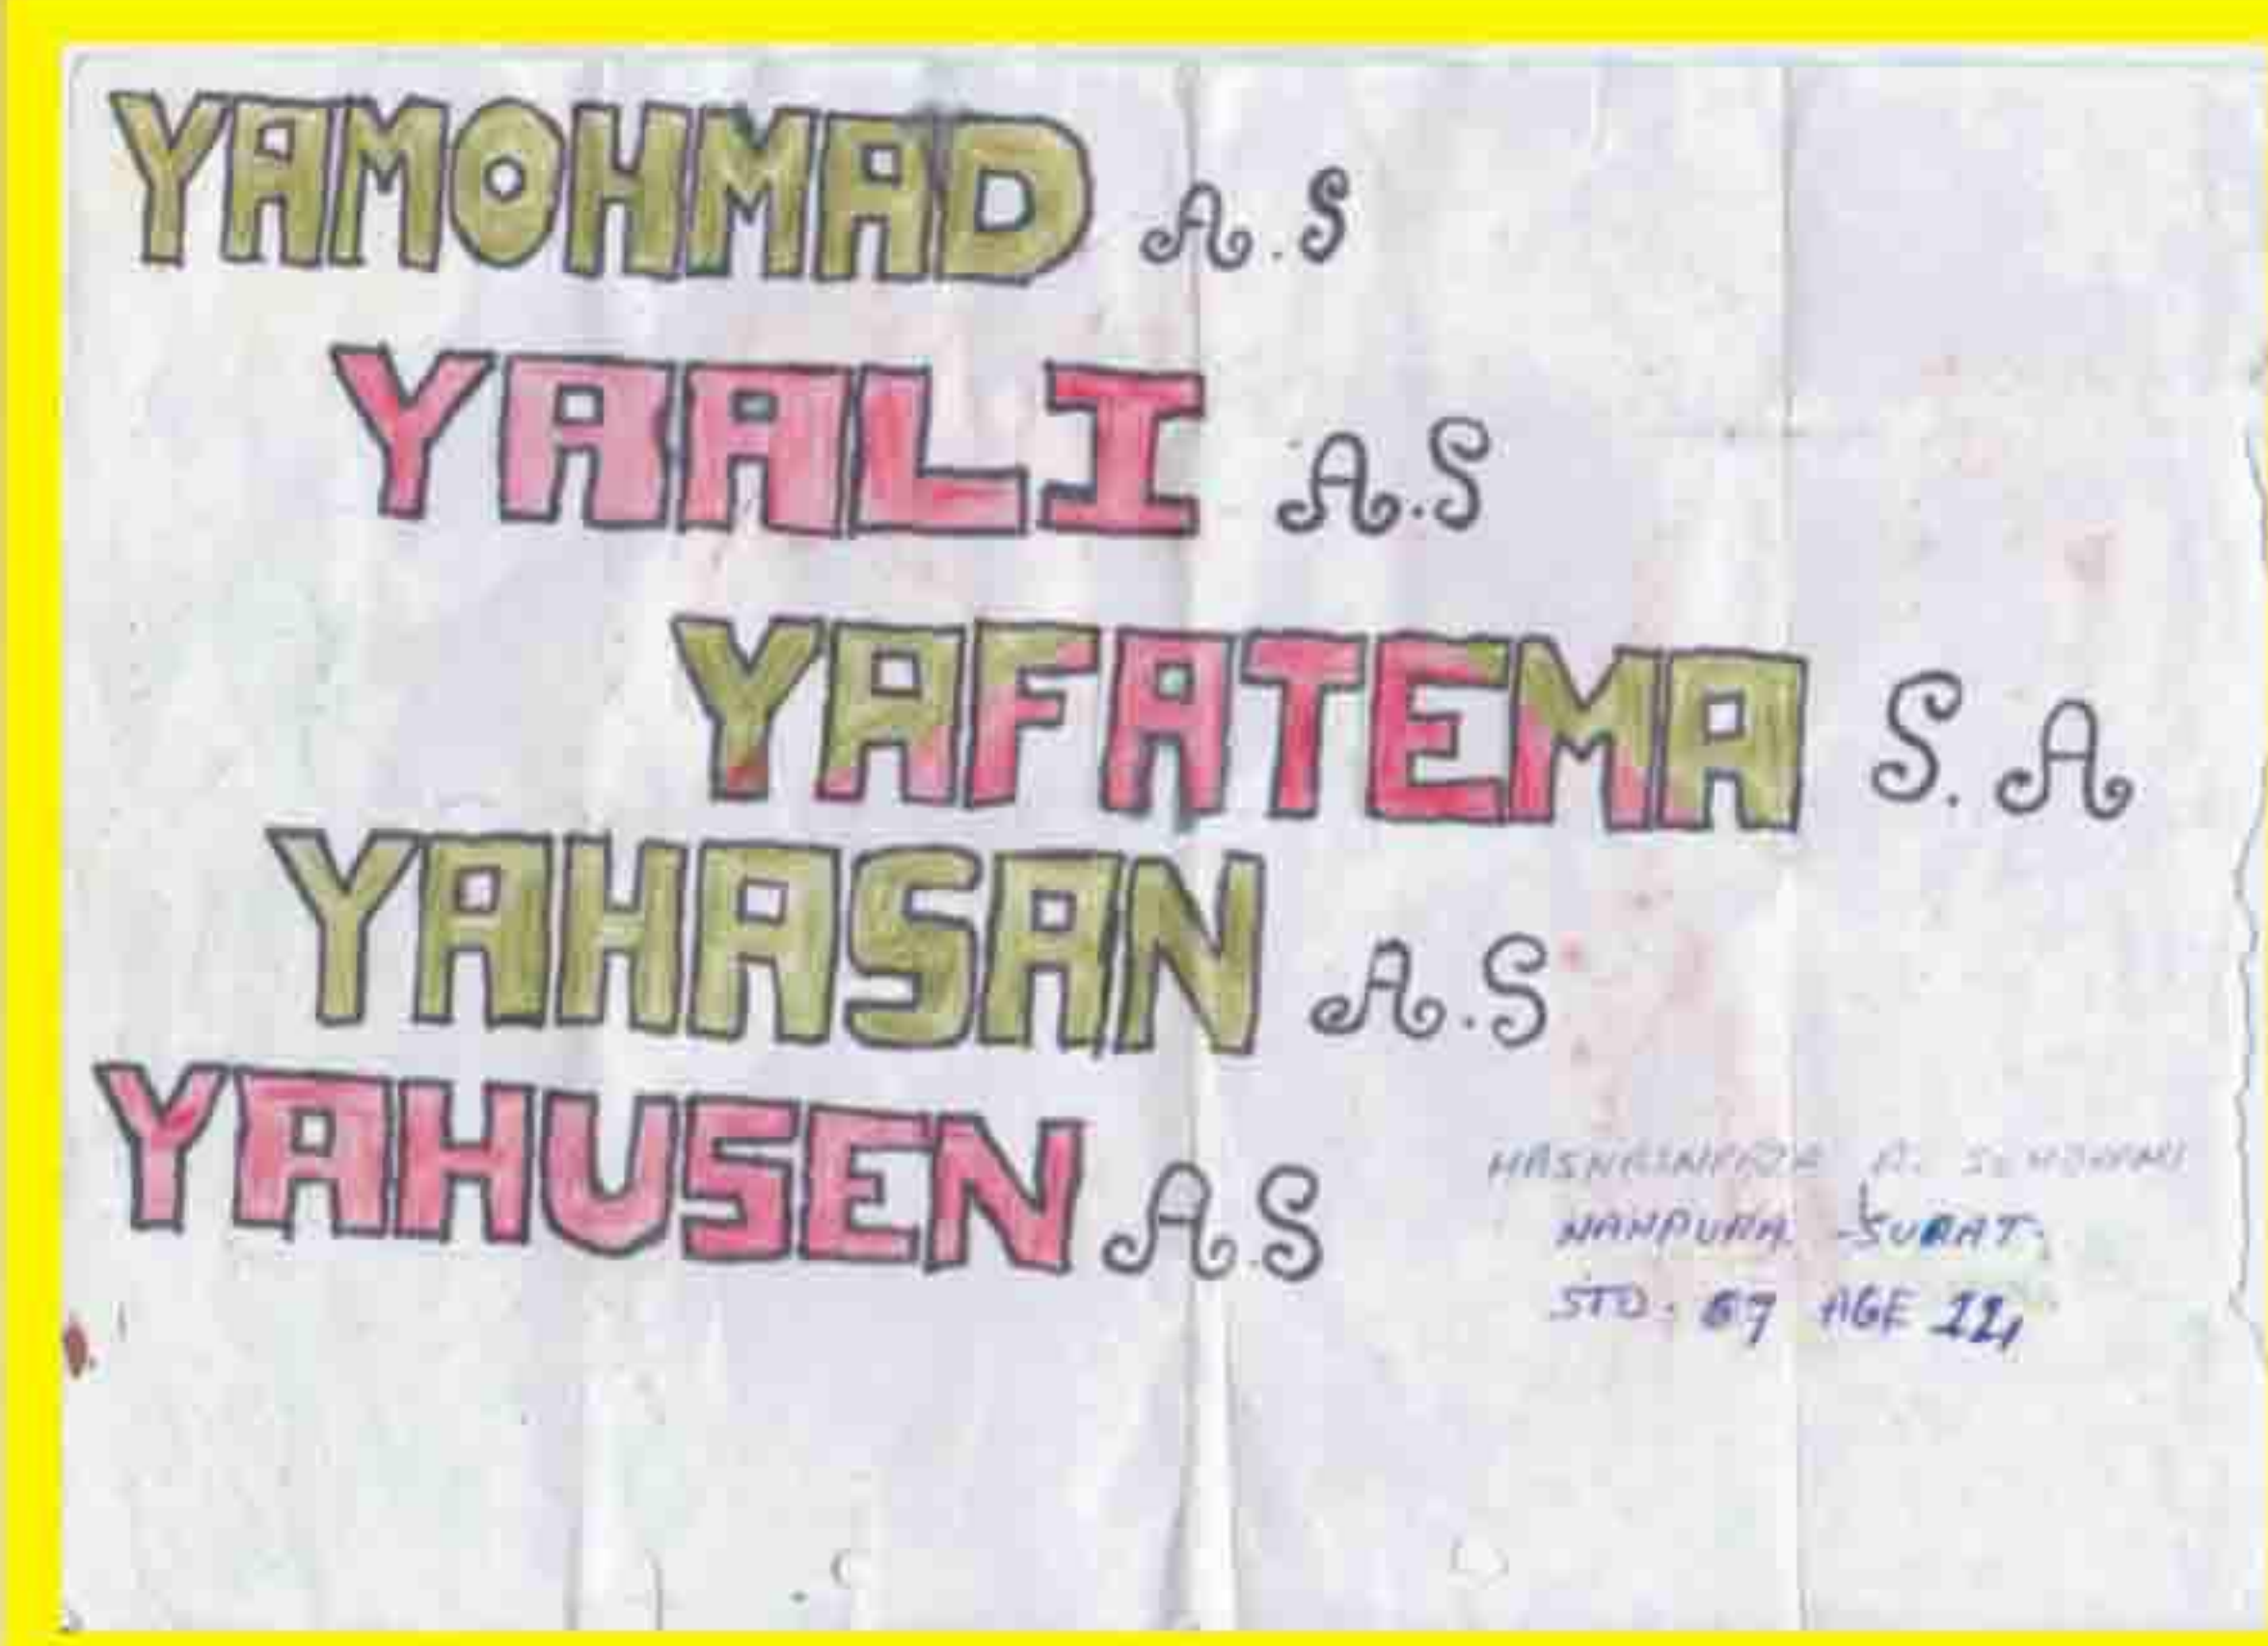 YAMOHMAD A.S
YAALI A.S
YAFATEMA S.A
YAHASAN A.S
YAHUSEN A.S
A.
NANPURA SURAT.
STD. 07 AGE